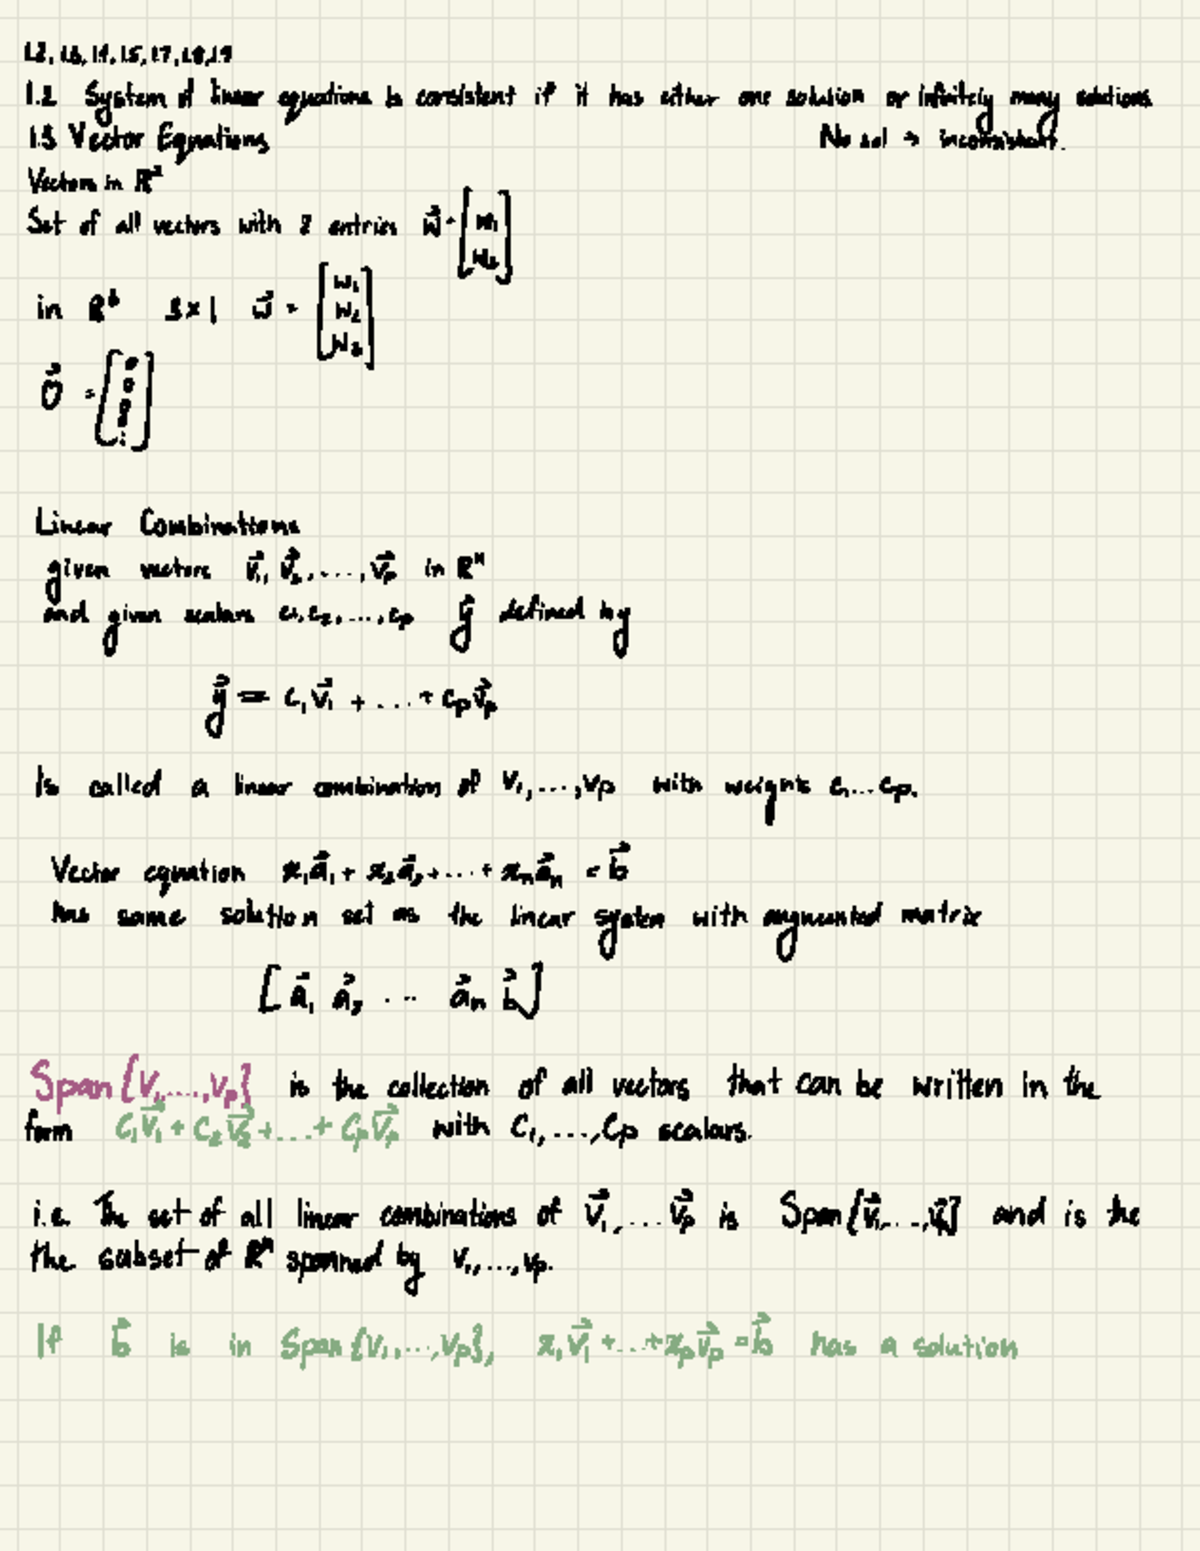 1.2, 1.3, 1.4, 1.5, 1.7, 1.8, 1.9
1.2 System of linear equations is consistent if it has either one solution or infinitely many solutions
1.3 Vector Equations No sol → inconsistent.
Vectors in ℝ²
Set of all vectors with 2 entries w⃗ = [w₁ w₂]
in ℝ³ 3×1 w⃗ = [w₁ w₂ w₃]
0⃗ = [0 0 0 ⋮]
Linear Combinations
given vectors v⃗₁, v⃗₂, ..., v⃗p in ℝⁿ
and given scalars c₁, c₂, ..., cp y⃗ defined by
y⃗ = c₁v⃗₁ + ... + cpv⃗p
Is called a linear combination of v₁, ..., vp with weights c₁...cp.
Vector equation x₁a⃗₁ + x₂a⃗₂ + ... + xₙa⃗ₙ = b⃗
has same solution set as the linear system with augmented matrix
[a⃗₁ a⃗₂ ... a⃗ₙ b⃗]
Span{v₁, ..., vp} is the collection of all vectors that can be written in the
form c₁v⃗₁ + c₂v⃗₂ + ... + cpv⃗p with c₁, ..., cp scalars.
i.e. The set of all linear combinations of v⃗₁, ... v⃗p is Span{v⃗₁, ..., v⃗p} and is the
the subset of ℝⁿ spanned by v₁, ..., vp.
If b⃗ is in Span{v₁, ..., vp}, x₁v⃗₁ + ... + xpv⃗p = b⃗ has a solution